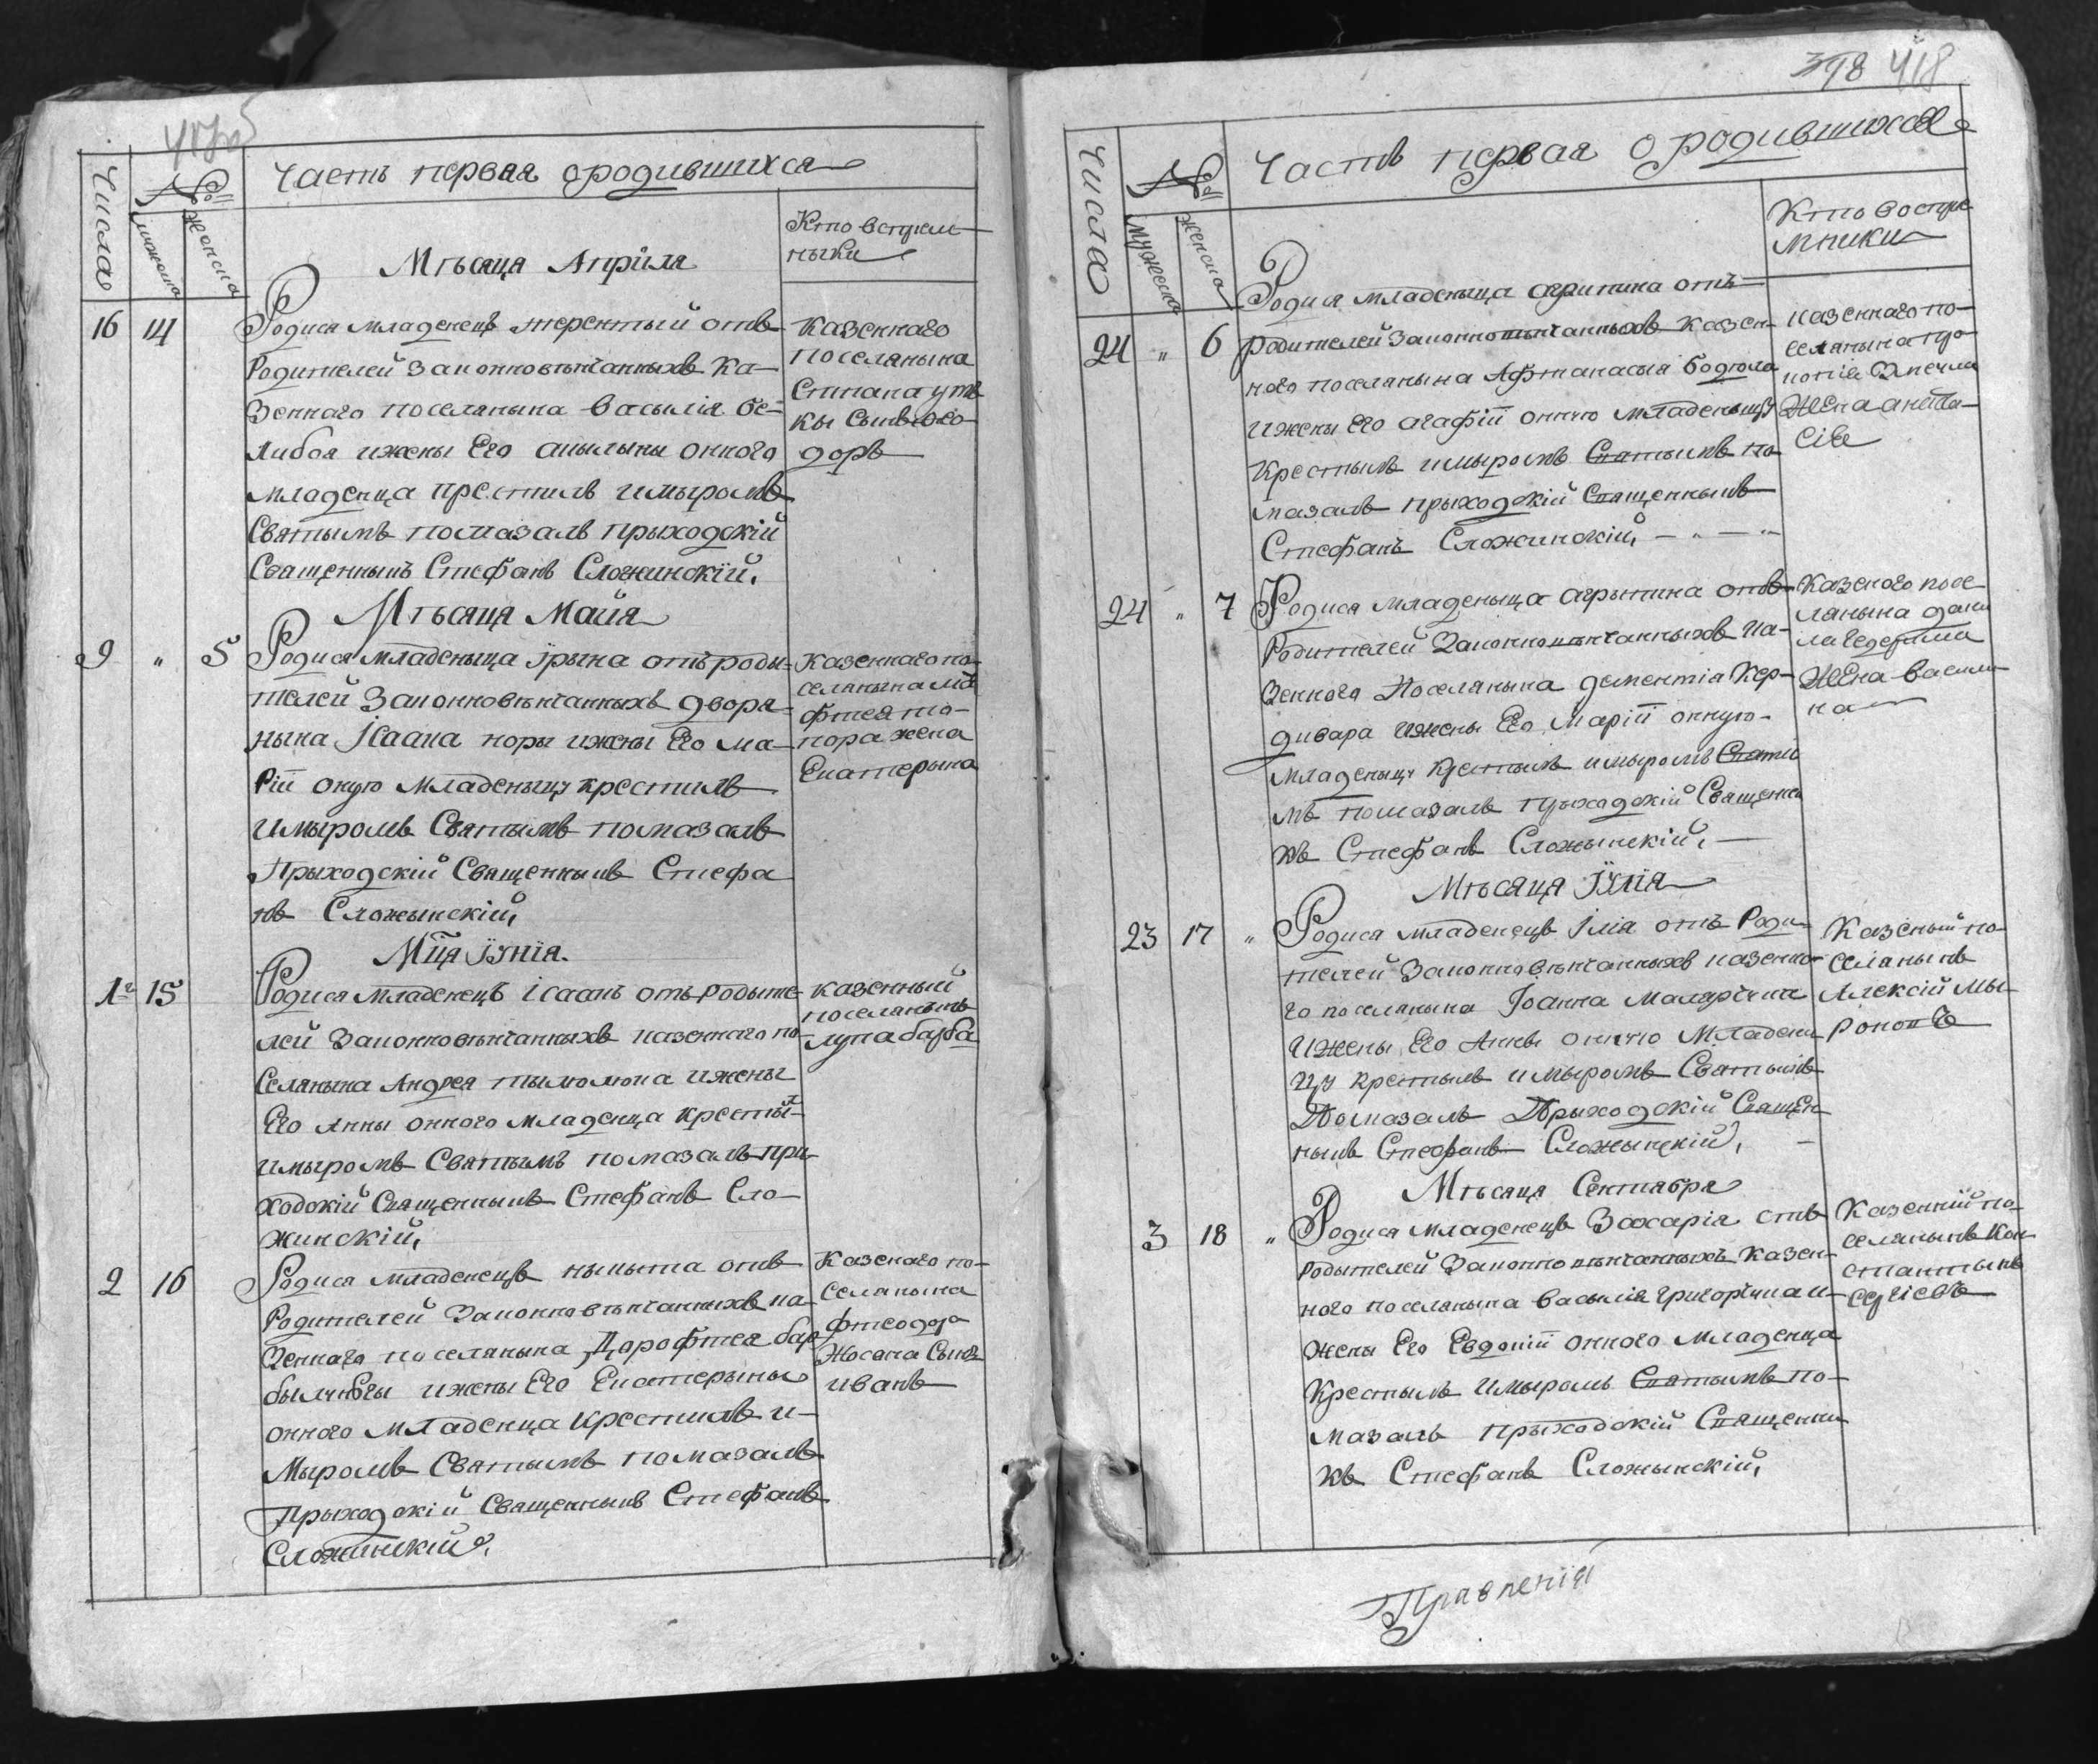 Числа
№
мужеска
женска
Часть первая ородившихся
Мѣсяца Апрѣля
16 14
Родися младенецъ терентый отъ
Родителей Законновѣнчанныхъ Ка-
зенного поселянына василія бе-
либоя ижены Его онного
младенца крестилъ имыромъ
Святымъ помазалъ прыходскій
Священныкъ Стефанъ Сложинскій.
Казенного
поселяныня
Мѣсяца Майя
9 " 5
Родися младеныца Ірына отъ роды-
телей Законновѣнчанныхъ дворя-
нына Ісаака норы ижены Его ма-
ріи оную младеныцу крестилъ
имыромъ Святымъ помазалъ
Прыходскій Священныкъ Стефа
нъ Сложынскій,
Казенного по-
селянына ма
фтея то-
пора жена
Екатерына
Мца Іунія.
1го 15
Родися младенецъ Ісаакъ отъ Родыте-
лей Законновѣнчанныхъ казенного по-
Селянына Андрея тымолюка ижены
Его Анны онного младенца кресты
имыромъ Святымъ помазалъ при-
ходскій Священныкъ Стефанъ Сло-
жинскій,
казенный
поселянынъ
лупа барба
2 16
Родися младенецъ ныкыта отъ
Родителей Законновѣнчанныхъ ка-
зенного поселянына Дорофтея
ижены Его Екатерыны
онного младенца Крестилъ и-
Мыромъ Святымъ помазалъ
Прыходскій Священныкъ Стефанъ
Сложинскій.
Казеного по-
селянына
фтеодора
Сынъ
иванъ
398 418
Числа
№
мужеска
женска
Часть первая ородившихся
Кто воспрѣ
мники
24 " 6
Родися младеныца агрипина отъ
родителей Законновѣнчанныхъ Казен-
ного поселянына Афтанасыя бодюла
ижены Его агафіи онную младеныцу
Крестылъ имыромъ Святымъ по
мазалъ прыходскій Священныкъ
Стефанъ Сложинскій,
казенного по-
селянына про-
жена анаста-
сія
24 " 7
Родися младеныца агрыпина отъ
Родителей Законновѣнчанныхъ Ка-
зенного Поселянына дементіа Кер-
дивара ижены Его Маріи онную
Младеныцу крестылъ имыромъ Святы
мъ помазалъ прыходскій Священны
къ Стефанъ Сложынскій,
Казеного посе
лянына дани
ла
жена васили
на
Мѣсяца Іулія
23 17 "
Родися младенецъ Ілія отъ Роди-
телей Законновѣнчанныхъ казенно-
го поселянына Іоанна
ижены Его Анны онную Младены
цу крестылъ имыромъ Святымъ
Помазалъ Прыходскій Священ
ныкъ Стефанъ Сложынскій,
Казеный по-
селянынъ
Алексій Мы-
Мѣсяца Сентабра
3 18 "
Родися младенецъ Захарія отъ
Родытелей Законновѣнчанныхъ Казен-
ного поселянына василія григорчика и-
жены Его Евдокіи онного младенца
Крестылъ имыромъ Святымъ по-
мазалъ прыходскій Священны
къ Стефанъ Сложынскій,
Казенный по-
селянынъ Кон-
стантынъ
Правленія